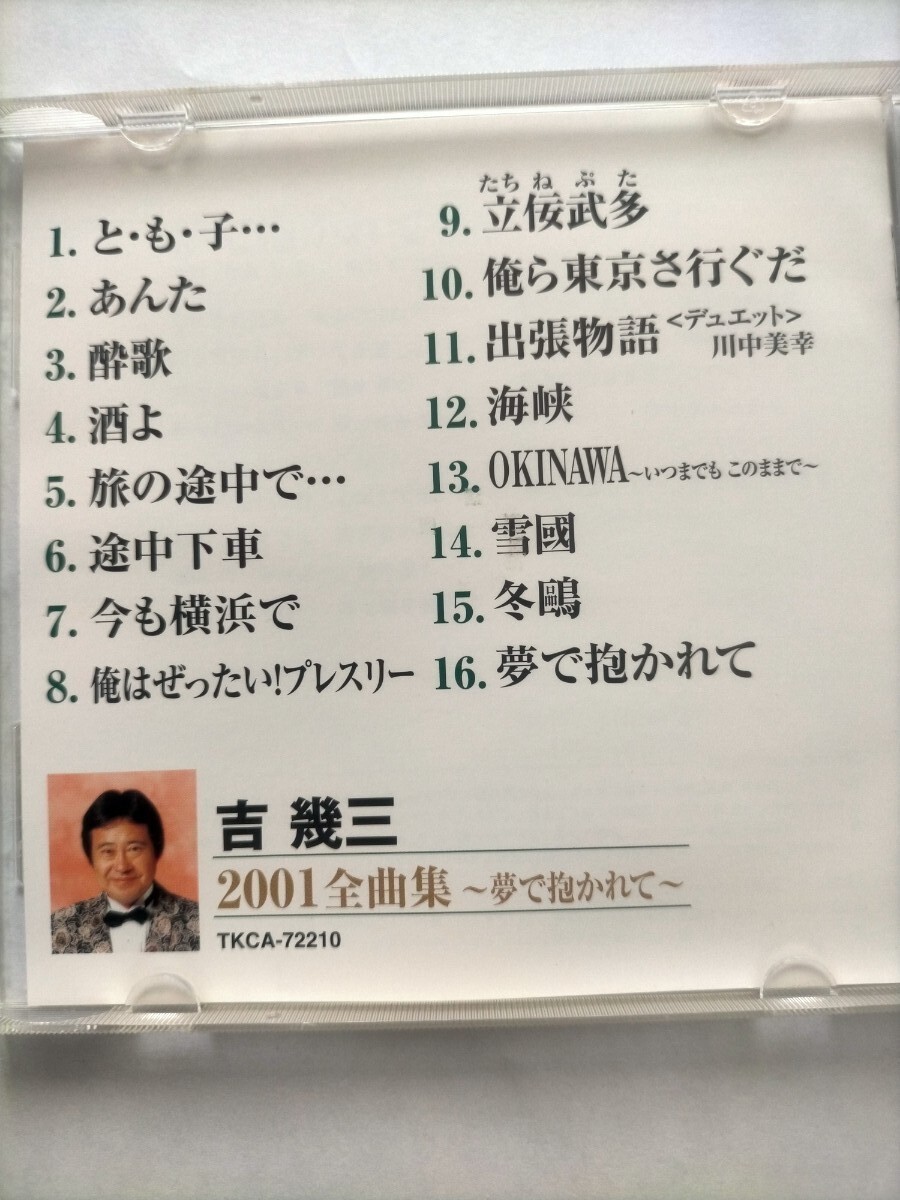 1. と・も・子…
2. あんた
3. 酔歌
4. 酒よ
5. 旅の途中で…
6. 途中下車
7. 今も横浜で
8. 俺はぜったい!プレスリー
たちねぷた
9. 立佞武多
10. 俺ら東京さ行ぐだ
11. 出張物語 <デュエット>
川中美幸
12. 海峡
13. OKINAWA～いつまでも このままで～
14. 雪國
15. 冬鷗
16. 夢で抱かれて
吉 幾三
2001全曲集 ～夢で抱かれて～
TKCA-72210